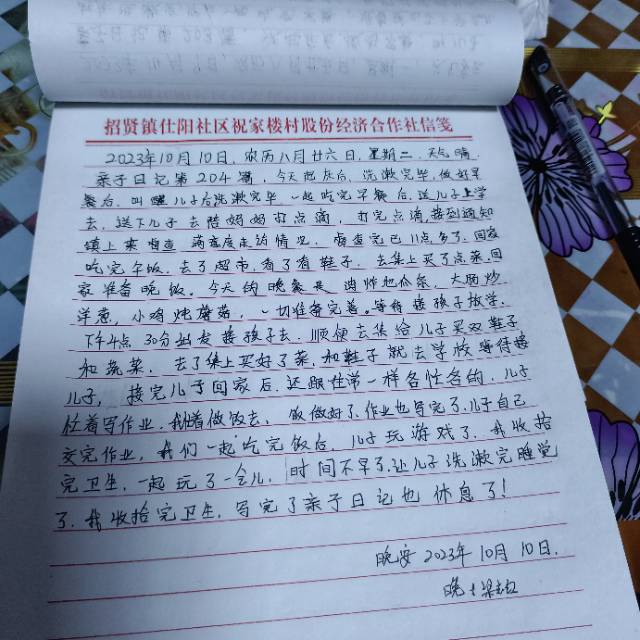 招贤镇仕阳社区祝家楼村股份经济合作社信笺
2023年10月10日，农历八月廿六日，星期二，天气晴
亲子日记第204篇，今天起床后，洗漱完毕，做好早
餐后，叫醒儿子后洗漱完毕，一起吃完早餐后，送儿子上学
去，送下儿子去陪妈妈打点滴，打完点滴接到通知
镇上来督查满意度走访情况，督查完已11点多了，回家
吃完午饭，去了超市，看了看鞋子，去集上买了点菜，回
家准备晚饭，今天的晚餐是油炸
洋葱，小鸡炖蘑菇，一切准备完善，等待接孩子放学，
下午4点30分出发接孩子去，顺便去集给儿子买双鞋子
和蔬菜，去了集上买好了菜，和鞋子就去学校等待接
儿子，接完儿子回家后，还跟往常一样各忙各的，儿子
忙着写作业，我忙着做饭去，饭做好了，作业也写完了，儿子自己
交完作业，我们一起吃完饭后，儿子玩游戏了，我收拾
完卫生，一起玩了一会儿，时间不早了，让儿子洗漱完睡觉
了，我收拾完卫生，写完了亲子日记也休息了！
晚安 2023年10月10日.
晚